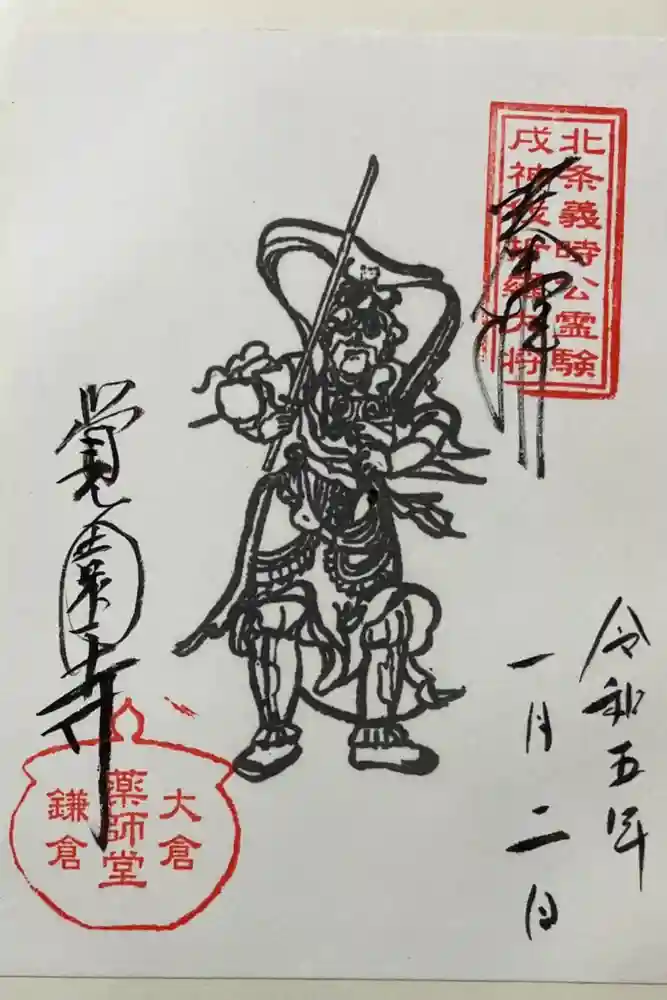 北条義時公霊験
戌神伐折羅大将
奉拝
令和五年
一月二日
覚園寺
大倉
薬師堂
鎌倉